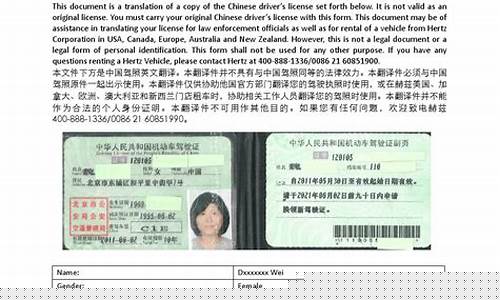 This document is a translation of a copy of the Chinese driver's license set forth below. It is not valid as an
original license. You must carry your original Chinese driver's license with this form. This document may be of
assistance in translating your license for law enforcement officials as well as for rental of a vehicle from Hertz
Corporation in USA, Canada, Europe, Australia and New Zealand. However, this is not a legal document or a
legal form of personal identification. This form shall not be used for any other purpose. If you have any
questions renting a Hertz Vehicle, please contact Hertz at 400-888-1336/0086 21 60851900.
本文件下方是中国驾照英文翻译。本翻译件并不具有与中国驾照同等的法律效力。本翻译件必须与中国
驾照原件一起出示使用。本翻译件仅供协助他国官方部门翻译您的驾驶执照时使用，或在赫兹美国、加
拿大、欧洲、澳大利亚和新西兰门店租车时，协助相关工作人员翻译您的驾照时使用。本翻译件并不能
作为合法的个人身份证明。本翻译件不可用作其他目的。如果您有任何问题，欢迎致电赫兹
400-888-1336/0086 21 60851990。
中华人民共和国机动车驾驶证
中国
北京市公
安局公安
交通管理局
1995-06-02
C1E
中华人民共和国机动车驾驶证副页
自2011年05月30日至有效起始日期有效。
请于2021年05月02日前九十日内申请
换领新驾驶证。
Name: Dxxxxxxx Wei
Gender: Female